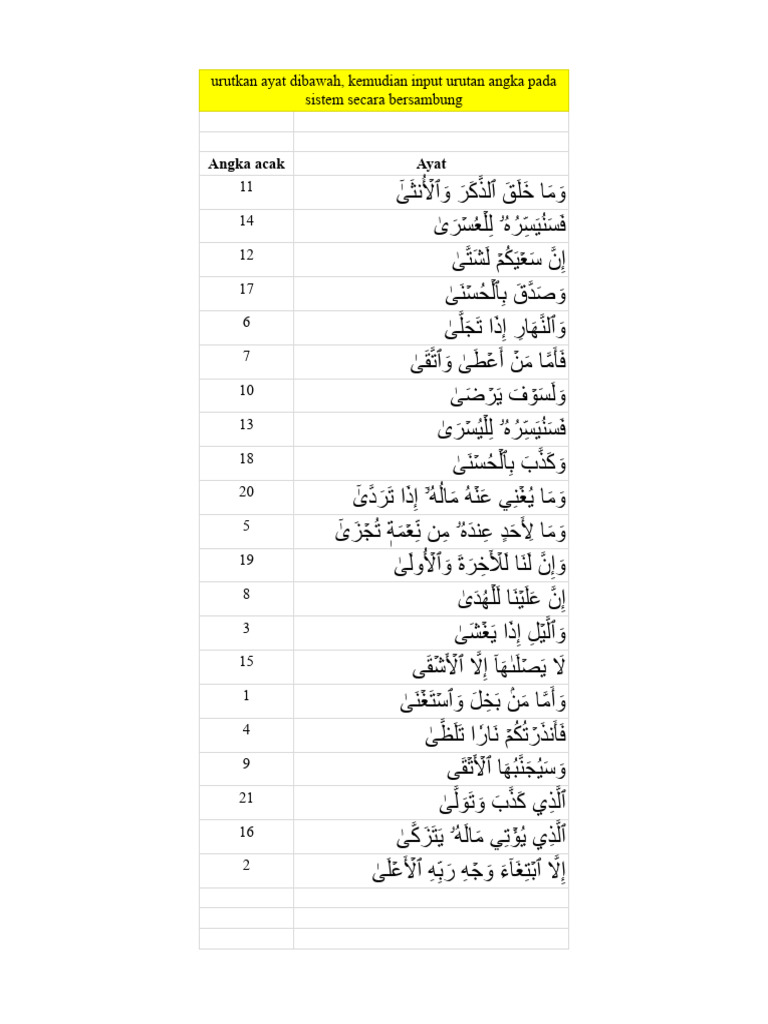 urutkan ayat dibawah, kemudian input urutan angka pada
sistem secara bersambung
Angka acak Ayat
11 وَمَا خَلَقَ ٱلذَّكَرَ وَٱلۡأُنثَىٰٓ
14 فَسَنُيَسِّرُهُۥ لِلۡعُسۡرَىٰ
12 إِنَّ سَعۡيَكُمۡ لَشَتَّىٰ
17 وَصَدَّقَ بِٱلۡحُسۡنَىٰ
6 وَٱلنَّهَارِ إِذَا تَجَلَّىٰ
7 فَأَمَّا مَنۡ أَعۡطَىٰ وَٱتَّقَىٰ
10 وَلَسَوۡفَ يَرۡضَىٰ
13 فَسَنُيَسِّرُهُۥ لِلۡيُسۡرَىٰ
18 وَكَذَّبَ بِٱلۡحُسۡنَىٰ
20 وَمَا يُغۡنِي عَنۡهُ مَالُهُۥٓ إِذَا تَرَدَّىٰٓ
5 وَمَا لِأَحَدٍ عِندَهُۥ مِن نِّعۡمَةٖ تُجۡزَىٰٓ
19 وَإِنَّ لَنَا لَلۡأٓخِرَةَ وَٱلۡأُولَىٰ
8 إِنَّ عَلَيۡنَا لَلۡهُدَىٰ
3 وَٱلَّيۡلِ إِذَا يَغۡشَىٰ
15 لَا يَصۡلَىٰهَآ إِلَّا ٱلۡأَشۡقَى
1 وَأَمَّا مَنۢ بَخِلَ وَٱسۡتَغۡنَىٰ
4 فَأَنذَرۡتُكُمۡ نَارٗا تَلَظَّىٰ
9 وَسَيُجَنَّبُهَا ٱلۡأَتۡقَى
21 ٱلَّذِي كَذَّبَ وَتَوَلَّىٰ
16 ٱلَّذِي يُؤۡتِي مَالَهُۥ يَتَزَكَّىٰ
2 إِلَّا ٱبۡتِغَآءَ وَجۡهِ رَبِّهِ ٱلۡأَعۡلَىٰ